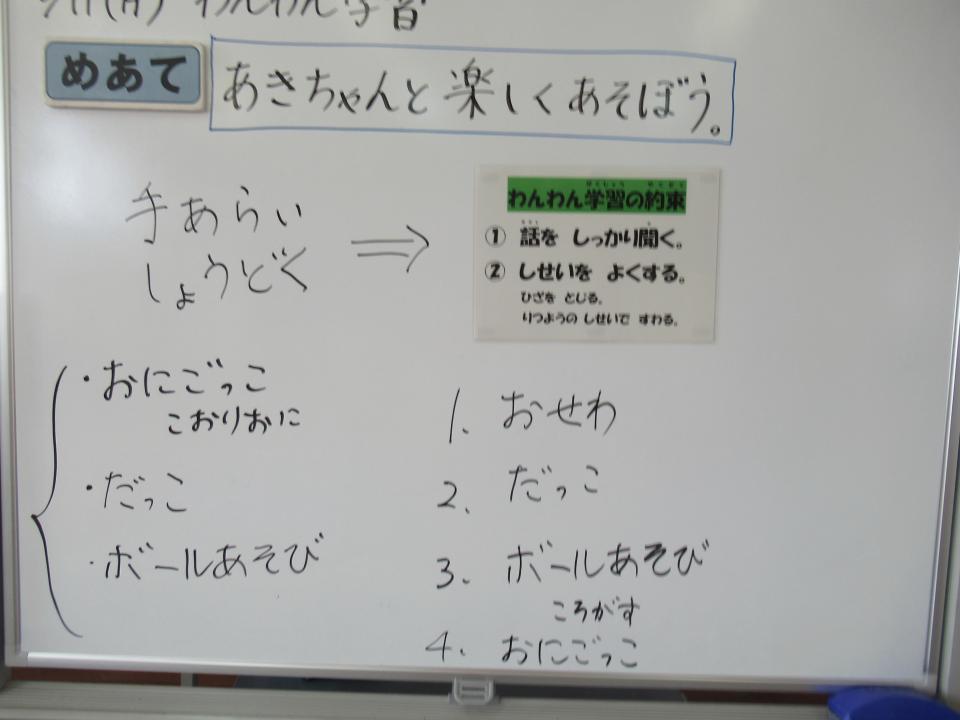 わんわん学習
めあて
あきちゃんと楽しくあそぼう。
手あらい
しょうどく
⇒
わんわん学習の約束
① 話を しっかり聞く。
② しせいを よくする。
ひざを とじる。
りつようの しせいで すわる。
・おにごっこ
こおりおに
・だっこ
・ボールあそび
1. おせわ
2. だっこ
3. ボールあそび
ころがす
4. おにごっこ